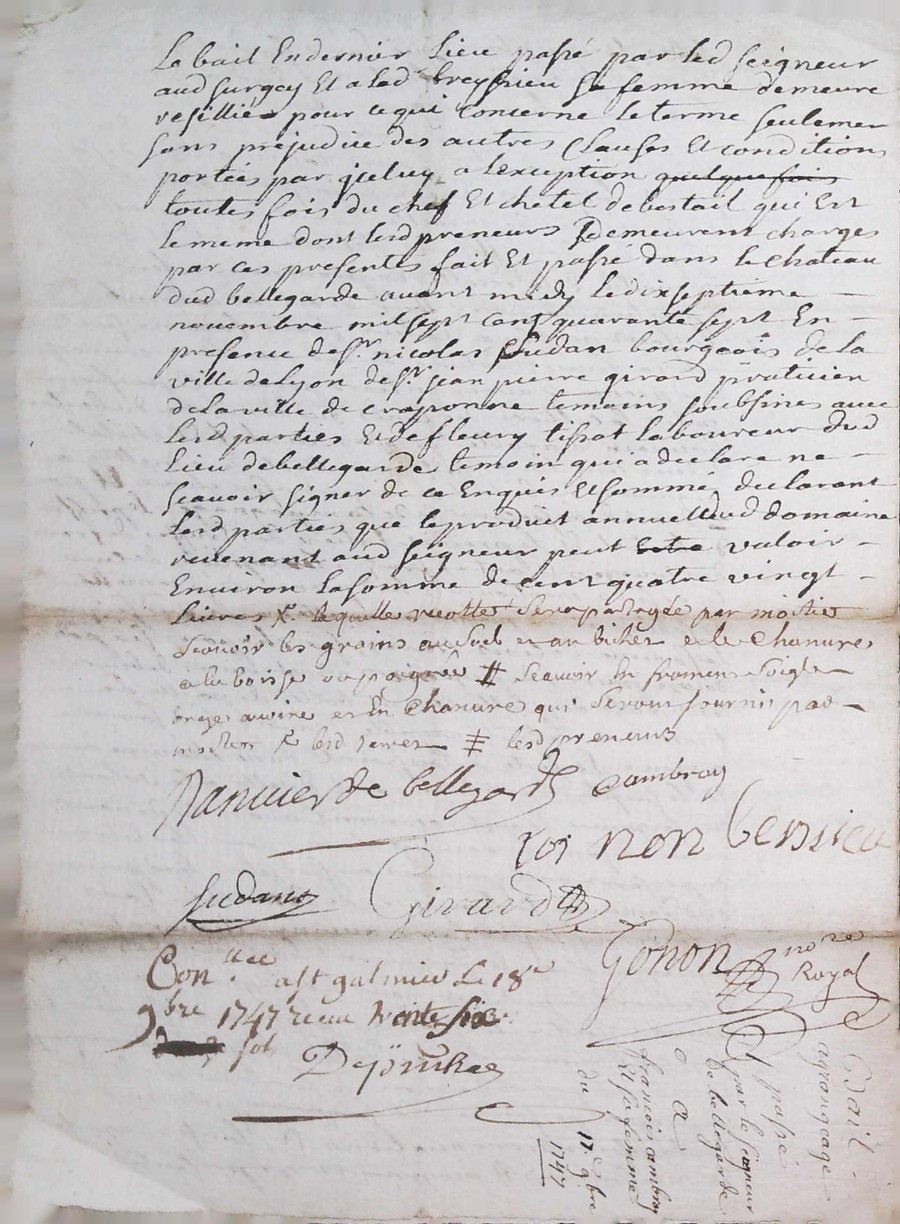 Le bail En dernier Lieu passé par led seigneur
aud surgey Et a lad breyssieu Sa femme demeure
resillié pour ce qui Concerne le terme seulemen
sans prejudice des autres Clauses Et conditions
portées par iceluy a lexception quelquefois
toutes fois du chef Et chetel de bestail qui Est
le meme dont lesd preneurs Demeurent charges
par ces presentes fait Et passé dans le Chateau
dud bellegarde avant midy le dixseptieme
novembre mil sept cent quarante sept En
presence de sr. nicolas Sudan bourgeois de la
ville de Lyon de sr. jean pierre girard praticien
de la ville de craponne temoins soubsines avec
lesd parties Et de fleury tissot laboureur dud
lieu de bellegarde temoin qui a declare ne
scavoir signer de ce Enquis Et sommé declarant
lesd parties que le produit annuel dud domaine
revenant aud seigneur peut Estre valoir
Environ la somme de cent quatre vingt
livres laquelle recolte sera partagée par moitié
scavoir les grains au sol et au bichet et le Chanvre
a la boisse ou poignée # scavoir En froment soigle
orge avoine et En Chanvre qui seront fournis par
moitié lesd # lesd preneurs
Ranvier de bellegarde Cambray
toi non bensieu
Sudan Girard
Gonon nore Royal
Con. a st galmier Le 18e
9bre 1747 recu trente six
sols
Bail
a grangeage
passé
par le seigneur
de bellegarde
a
francois cambray
Et sa femme
du 17e 9bre
1747